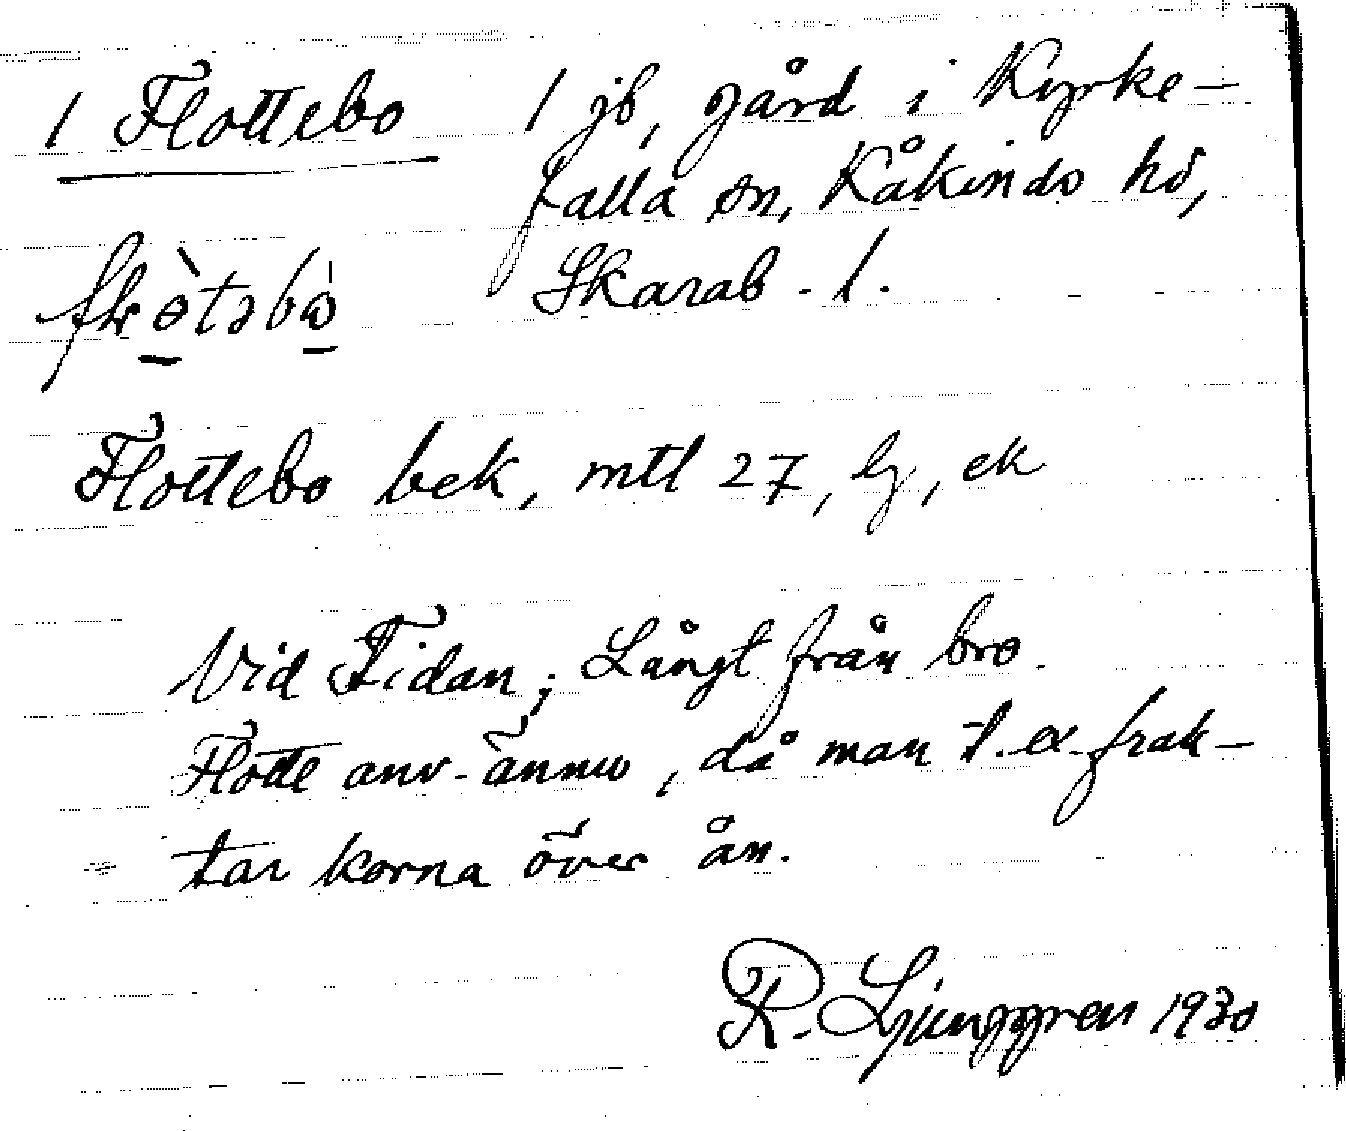 1 Flottebo 1 jb, gård i Kyrke-
falla sn, Kåkinds hd,
Skarab. l.
Flottebo bek, mtl 27, lg, ek
Vid Tidan; Långt från bro.
Flotte anv. ännu, då man t. ex. frak-
tar korna över ån.
R. Ljunggren 1930